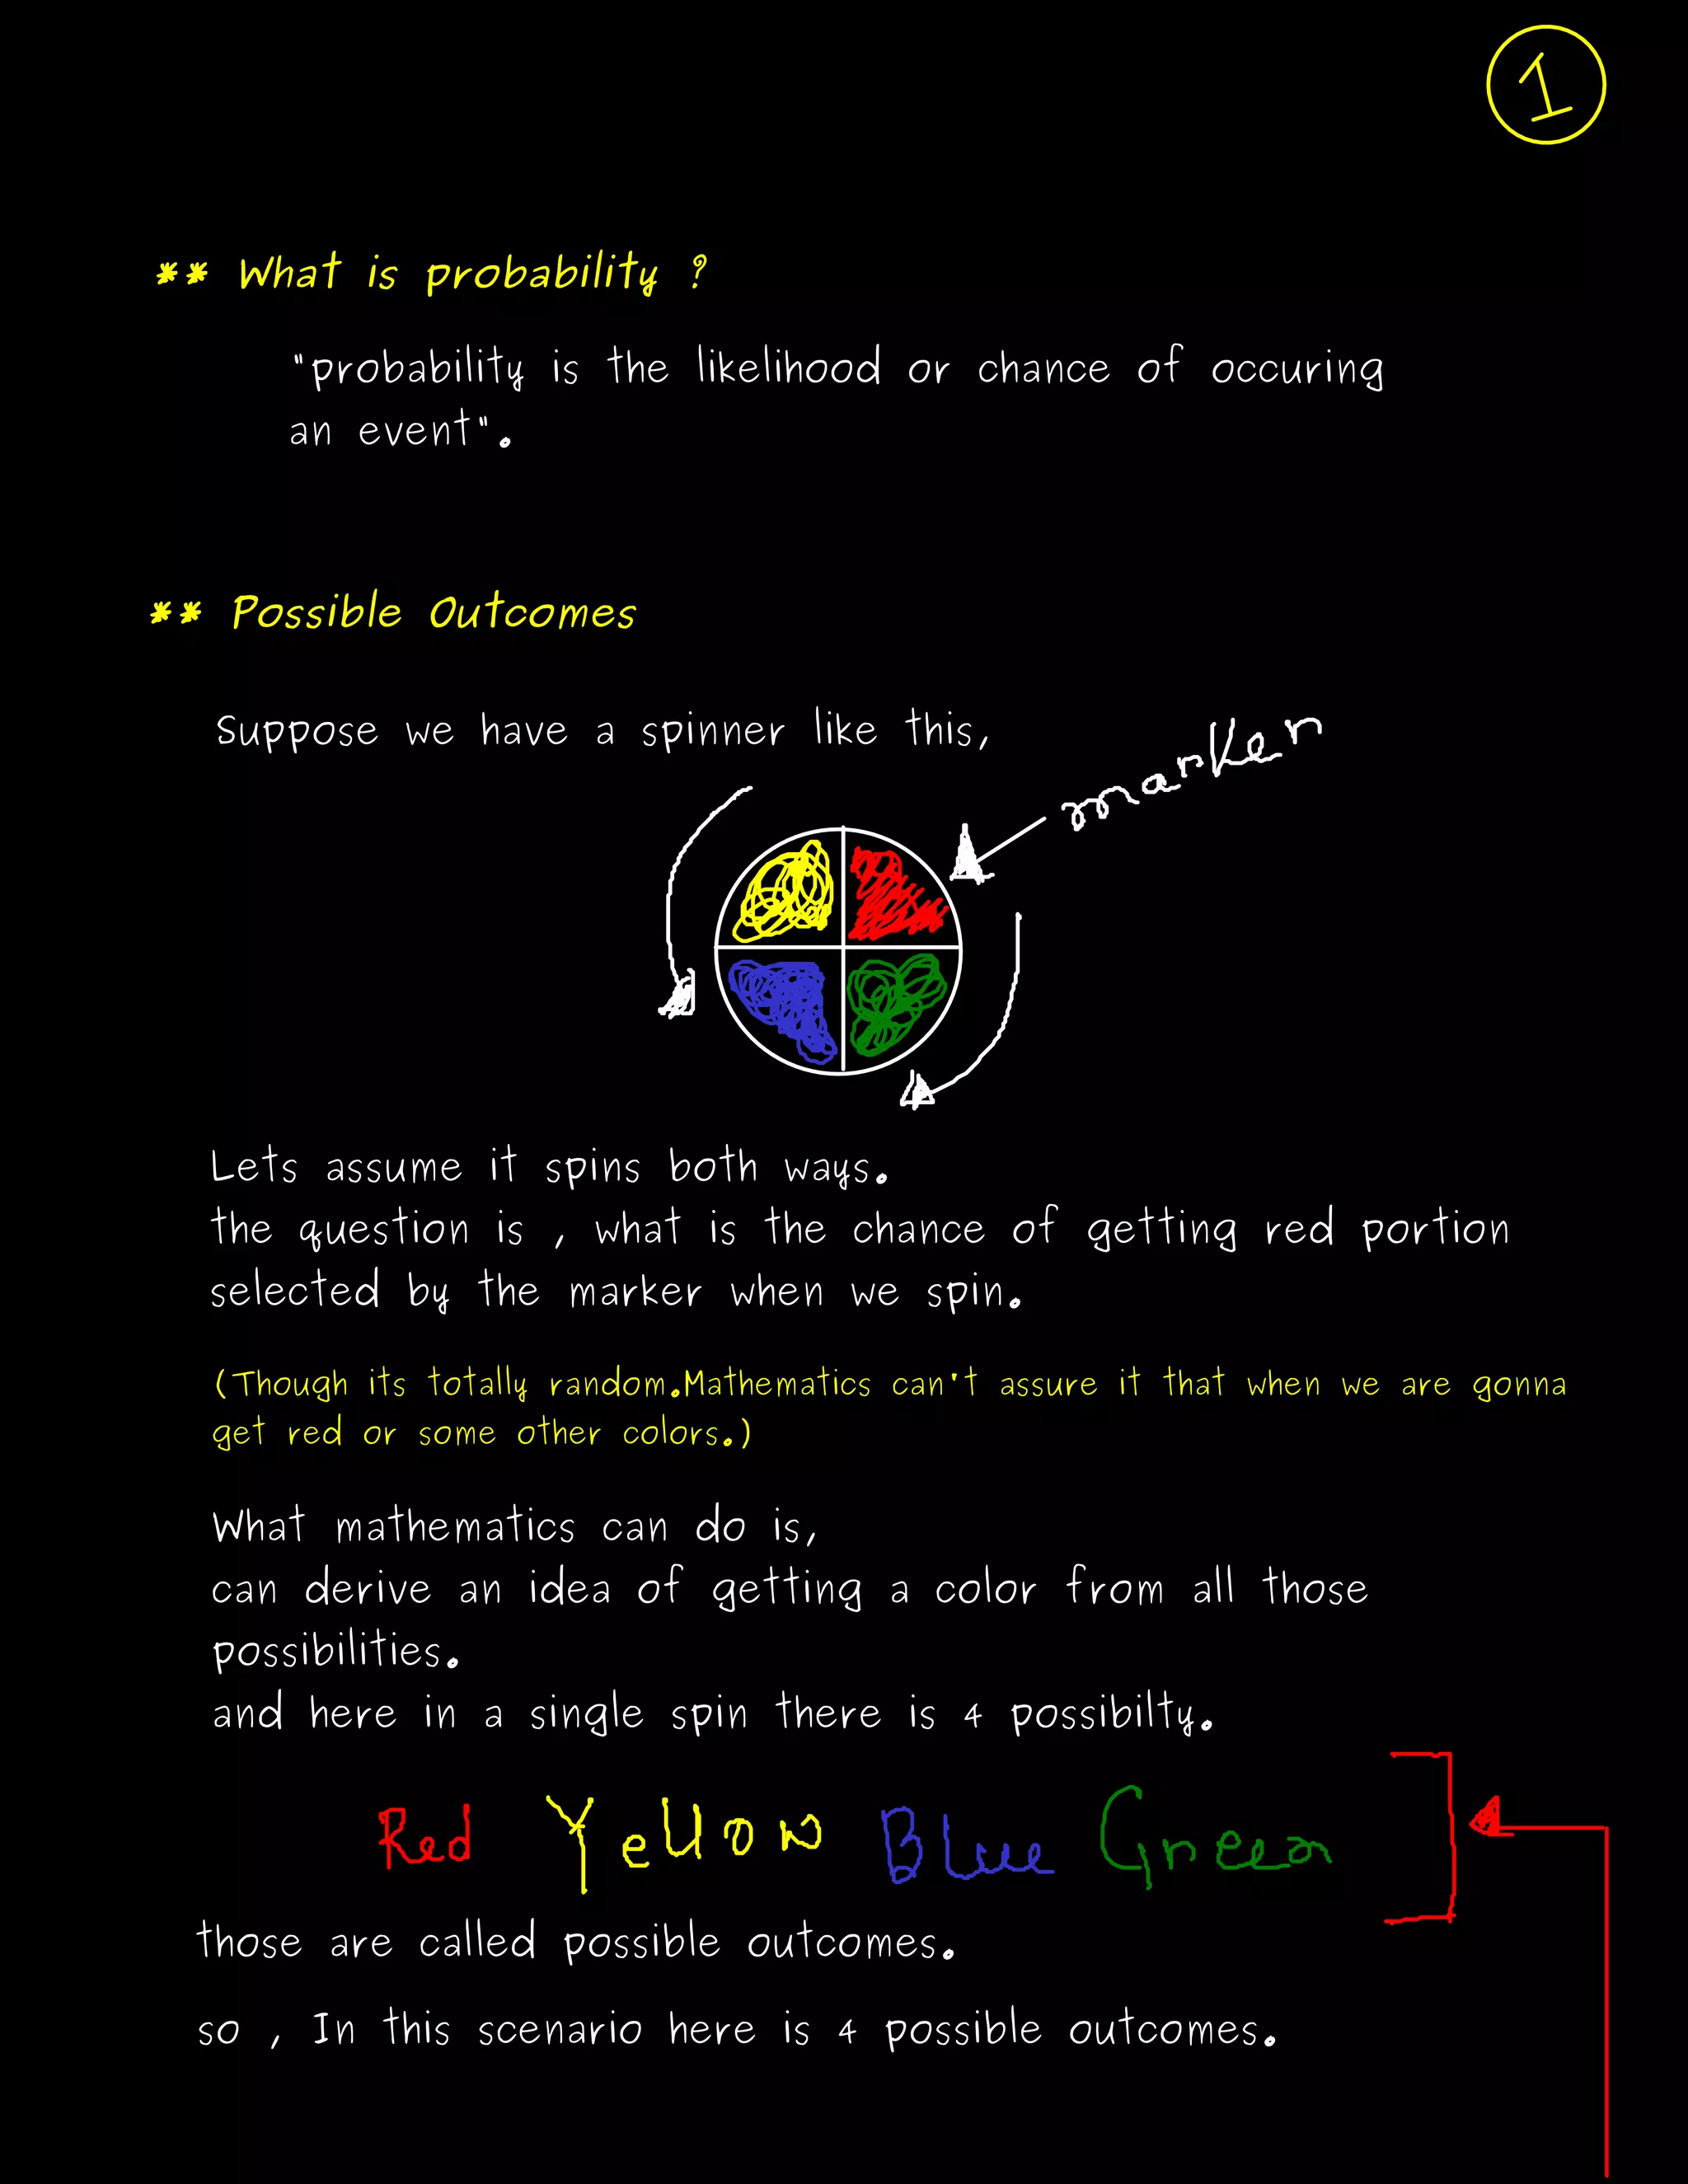 1
** What is probability ?
"probability is the likelihood or chance of occuring
an event".
** Possible Outcomes
Suppose we have a spinner like this,
marker
Lets assume it spins both ways.
the question is , what is the chance of getting red portion
selected by the marker when we spin.
(Though its totally random.Mathematics can't assure it that when we are gonna
get red or some other colors.)
What mathematics can do is,
can derive an idea of getting a color from all those
possibilities.
and here in a single spin there is 4 possibilty.
Red Yellow Blue Green
those are called possible outcomes.
so , In this scenario here is 4 possible outcomes.